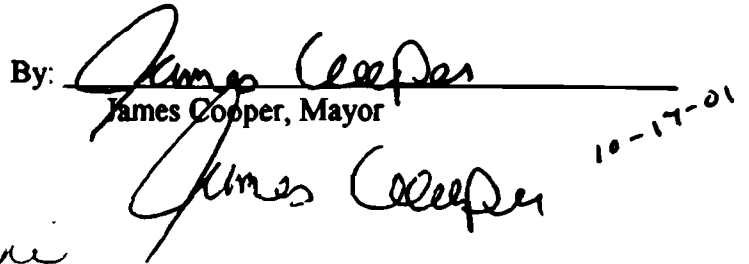 By: James Cooper
James Cooper, Mayor
10-17-01
James Cooper